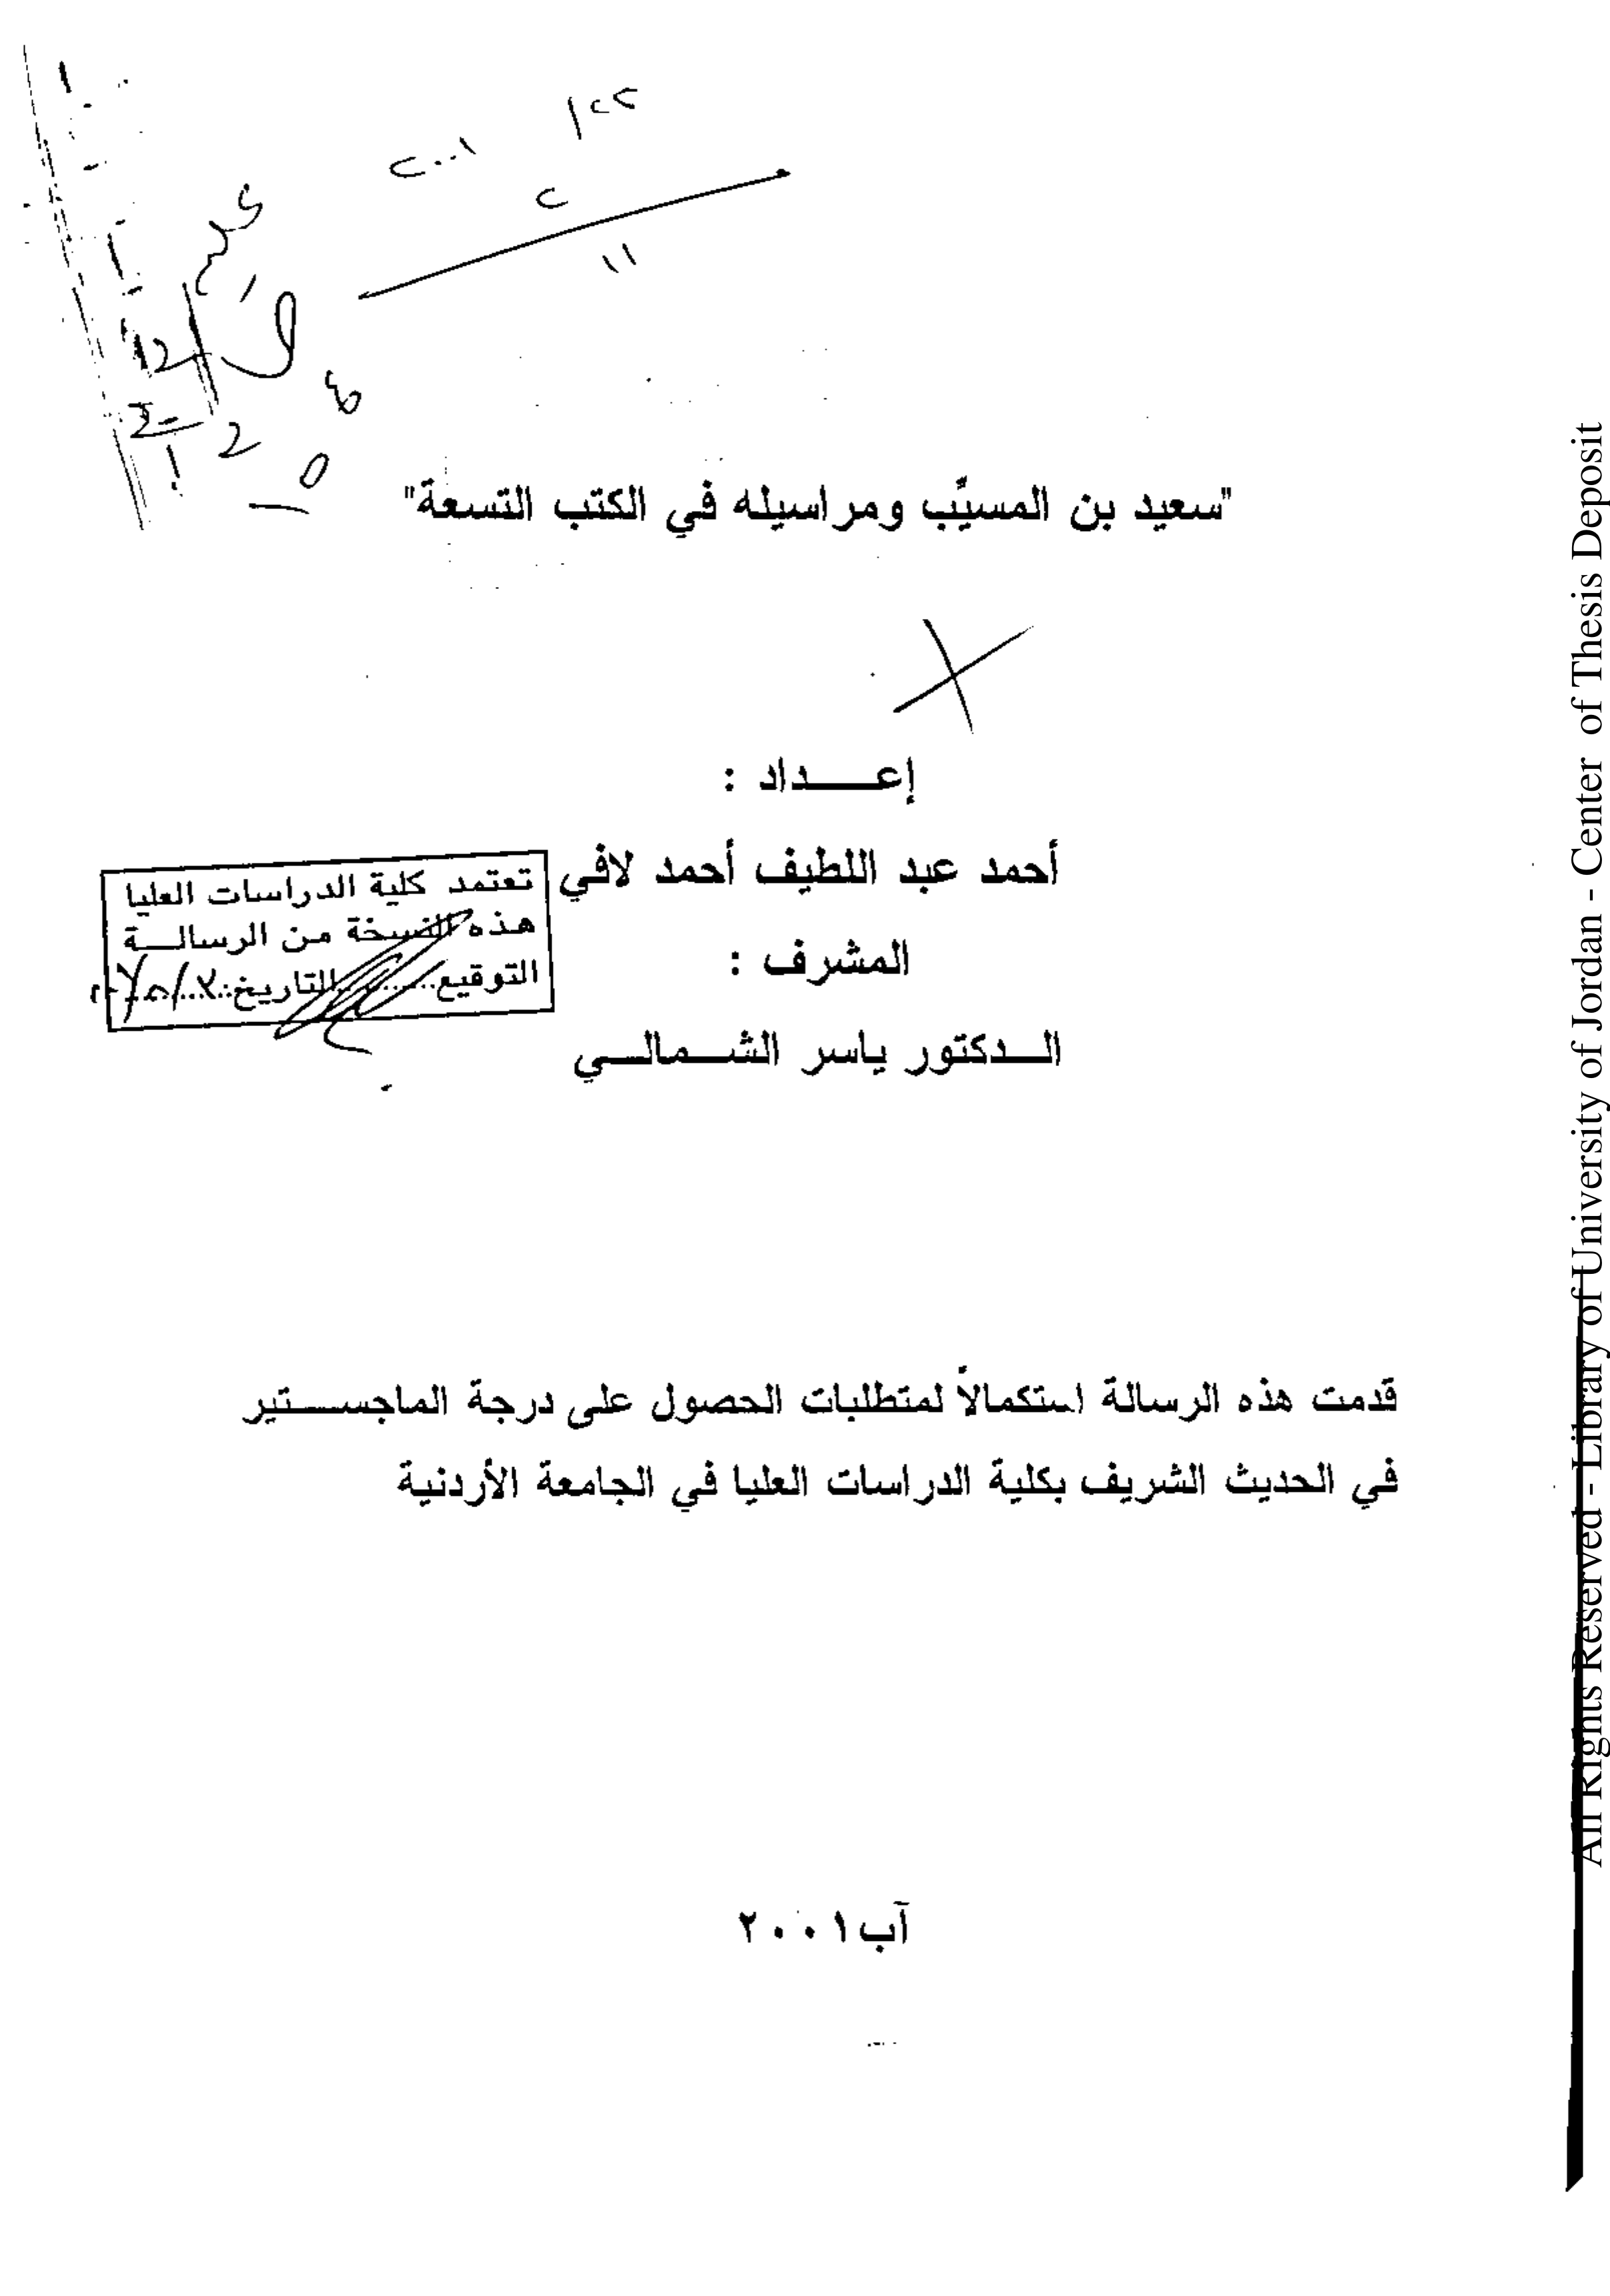 "سعيد بن المسيَّب ومراسيله في الكتب التسعة"
إعـــداد :
أحمد عبد اللطيف أحمد لافي
المشرف :
الـدكتور ياسر الشـمالـي
تعتمد كلية الدراسات العليا
هذه النسخة من الرسالـة
التوقيع........ التاريخ:
قدمت هذه الرسالة استكمالاً لمتطلبات الحصول على درجة الماجســتير
في الحديث الشريف بكلية الدراسات العليا في الجامعة الأردنية
آب ٢٠٠١
All Rights Reserved - Library of University of Jordan - Center of Thesis Deposit